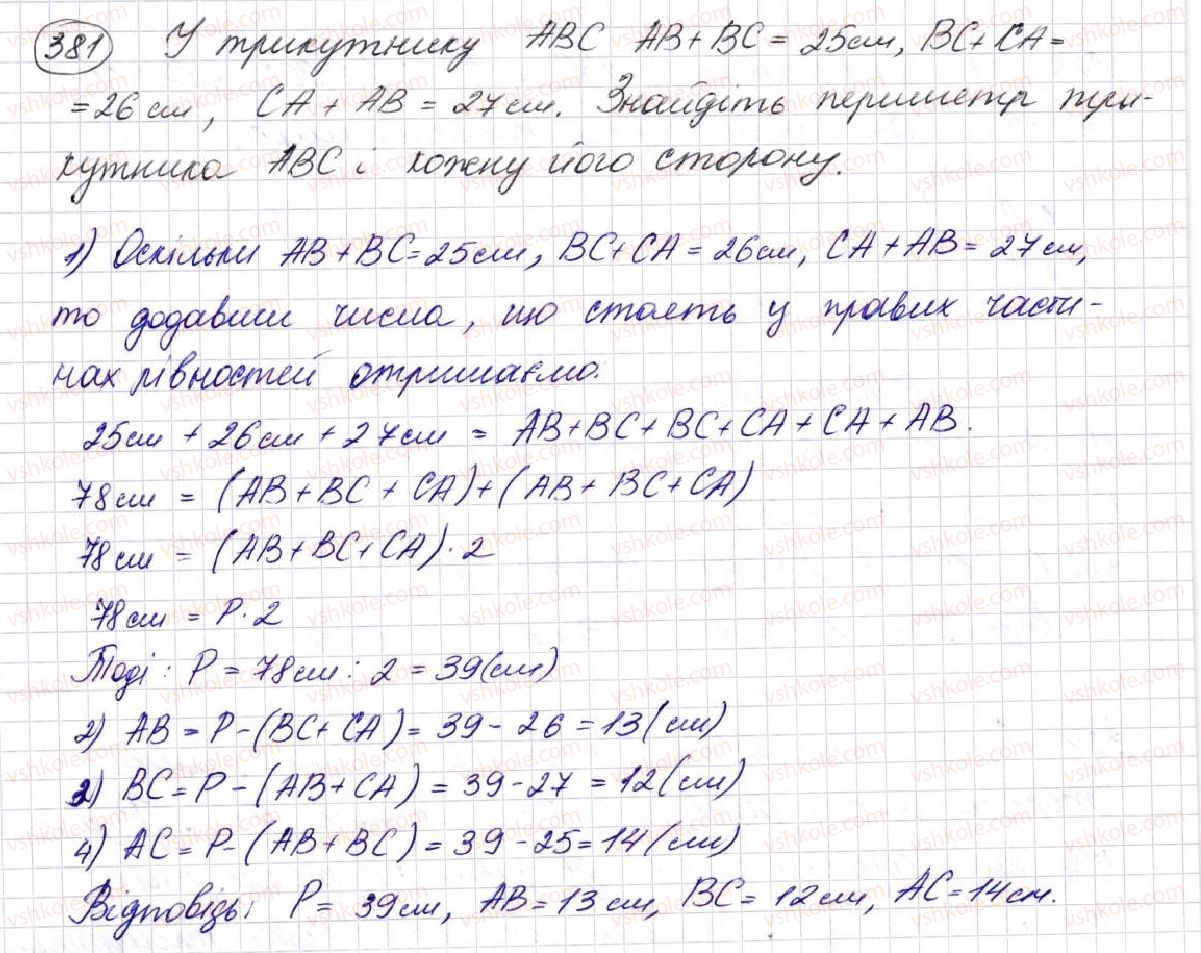 381 У трикутнику ABC AB + BC = 25см, BC + CA =
= 26 см, CA + AB = 27 см. Знайдіть периметр три-
кутника ABC і кожну його сторону.
1) Оскільки AB + BC = 25см, BC + CA = 26см, CA + AB = 27см,
то додавши числа, що стоять у правих части-
нах рівностей отримаємо:
25см + 26см + 27см = AB + BC + BC + CA + CA + AB.
78см = (AB + BC + CA) + (AB + BC + CA)
78см = (AB + BC + CA) · 2
78см = P · 2
Тоді: P = 78см : 2 = 39(см)
2) AB = P - (BC + CA) = 39 - 26 = 13(см)
3) BC = P - (AB + CA) = 39 - 27 = 12(см)
4) AC = P - (AB + BC) = 39 - 25 = 14(см)
Відповідь: P = 39см, AB = 13см, BC = 12см, AC = 14см.